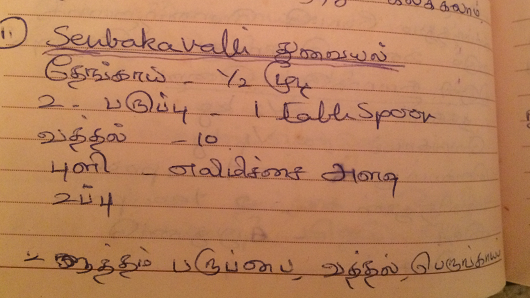 கலக்கலாம்
11) Senbakavalli துவையல்
தேங்காய் - 1/2 மூடி
உ. பருப்பு - 1 table spoon
வத்தல் - 10
புளி - எலுமிச்சை அளவு
உப்பு
உளுத்தம் பருப்பை, வத்தல், பெருங்காய